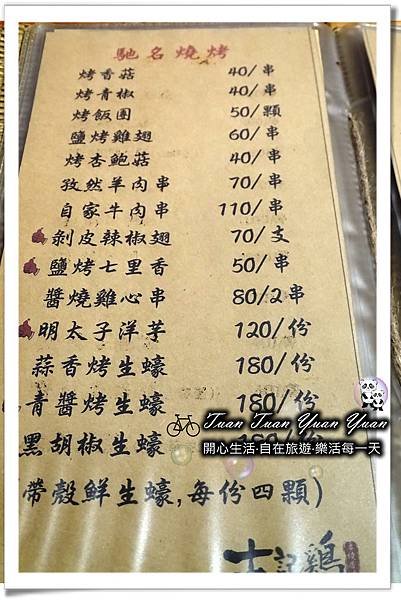 馳名燒烤
烤香菇 40/串
烤青椒 40/串
烤飯團 50/顆
鹽烤雞翅 60/串
烤杏鮑菇 40/串
孜然羊肉串 70/串
自家牛肉串 110/串
剝皮辣椒翅 70/支
鹽烤七里香 50/串
醬燒雞心串 80/2串
明太子洋芋 120/份
蒜香烤生蠔 180/份
青醬烤生蠔 180/份
黑胡椒生蠔
Tuan Tuan Yuan Yuan
開心生活‧自在旅遊‧樂活每一天
帶殼鮮生蠔,每份四顆)